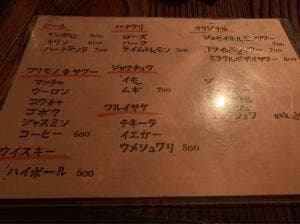 ビール
サッポロ 600
キリン 600
ハートランド 700
ワリモノ サワー
マッチャ
ウーロン
コウチャ
ゴボウ
ジャスミン
コーヒー 600
ウイスキー
ハイボール 600
ハナワリ
ローズ
ハーブ
ライム&レモン 700
ショウチュウ
イモ
ムギ 700
ワルイサケ
テキーラ
イエガー
ウメシュワリ 600
オリジナル
ジョセイホルモンサワー 700
ドライモヒート 700
ミラクルボディサワー 800